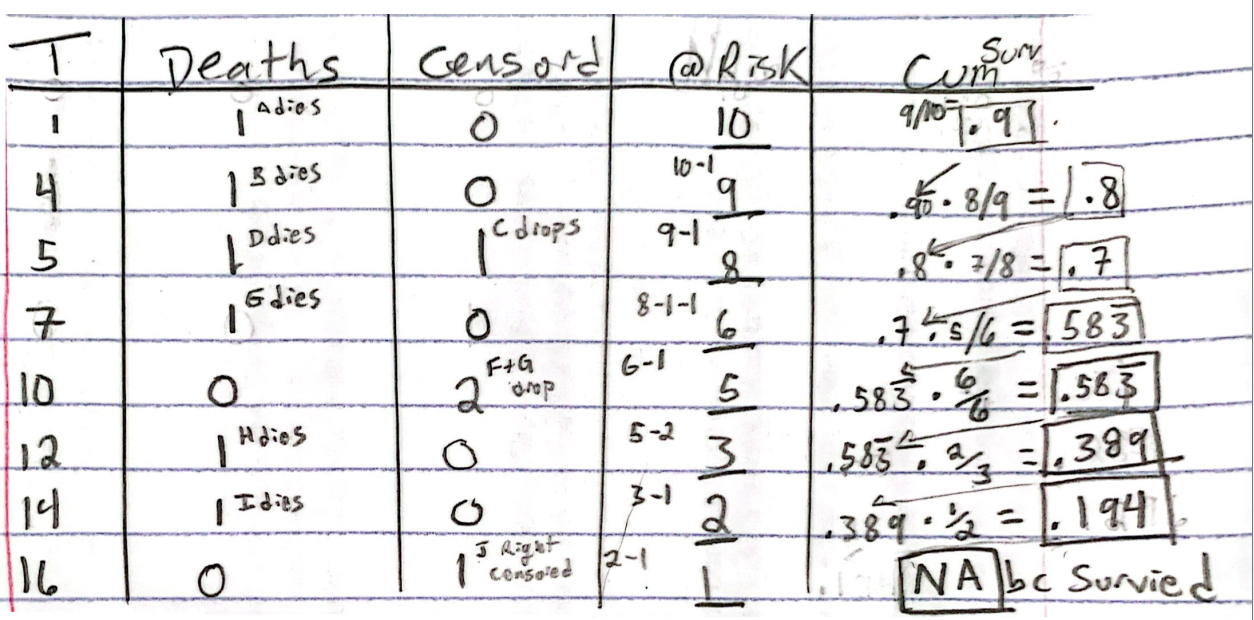 T Deaths Censord @Risk Cum Surv
1 1 A dies 0 10 9/10= .9
4 1 B dies 0 10-1 9 .90 · 8/9 = .8
5 1 D dies 1 C drops 9-1 8 .8 · 7/8 = .7
7 1 G dies 0 8-1-1 6 .7 · 5/6 = .583̅
10 0 2 F+G drop 6-1 5 .583̅ · 6/6 = .583̅
12 1 H dies 0 5-2 3 .583̅ · 2/3 = .389
14 1 I dies 0 3-1 2 .389 · 1/2 = .194
16 0 1 J Right Censored 2-1 1 NA bc Survied